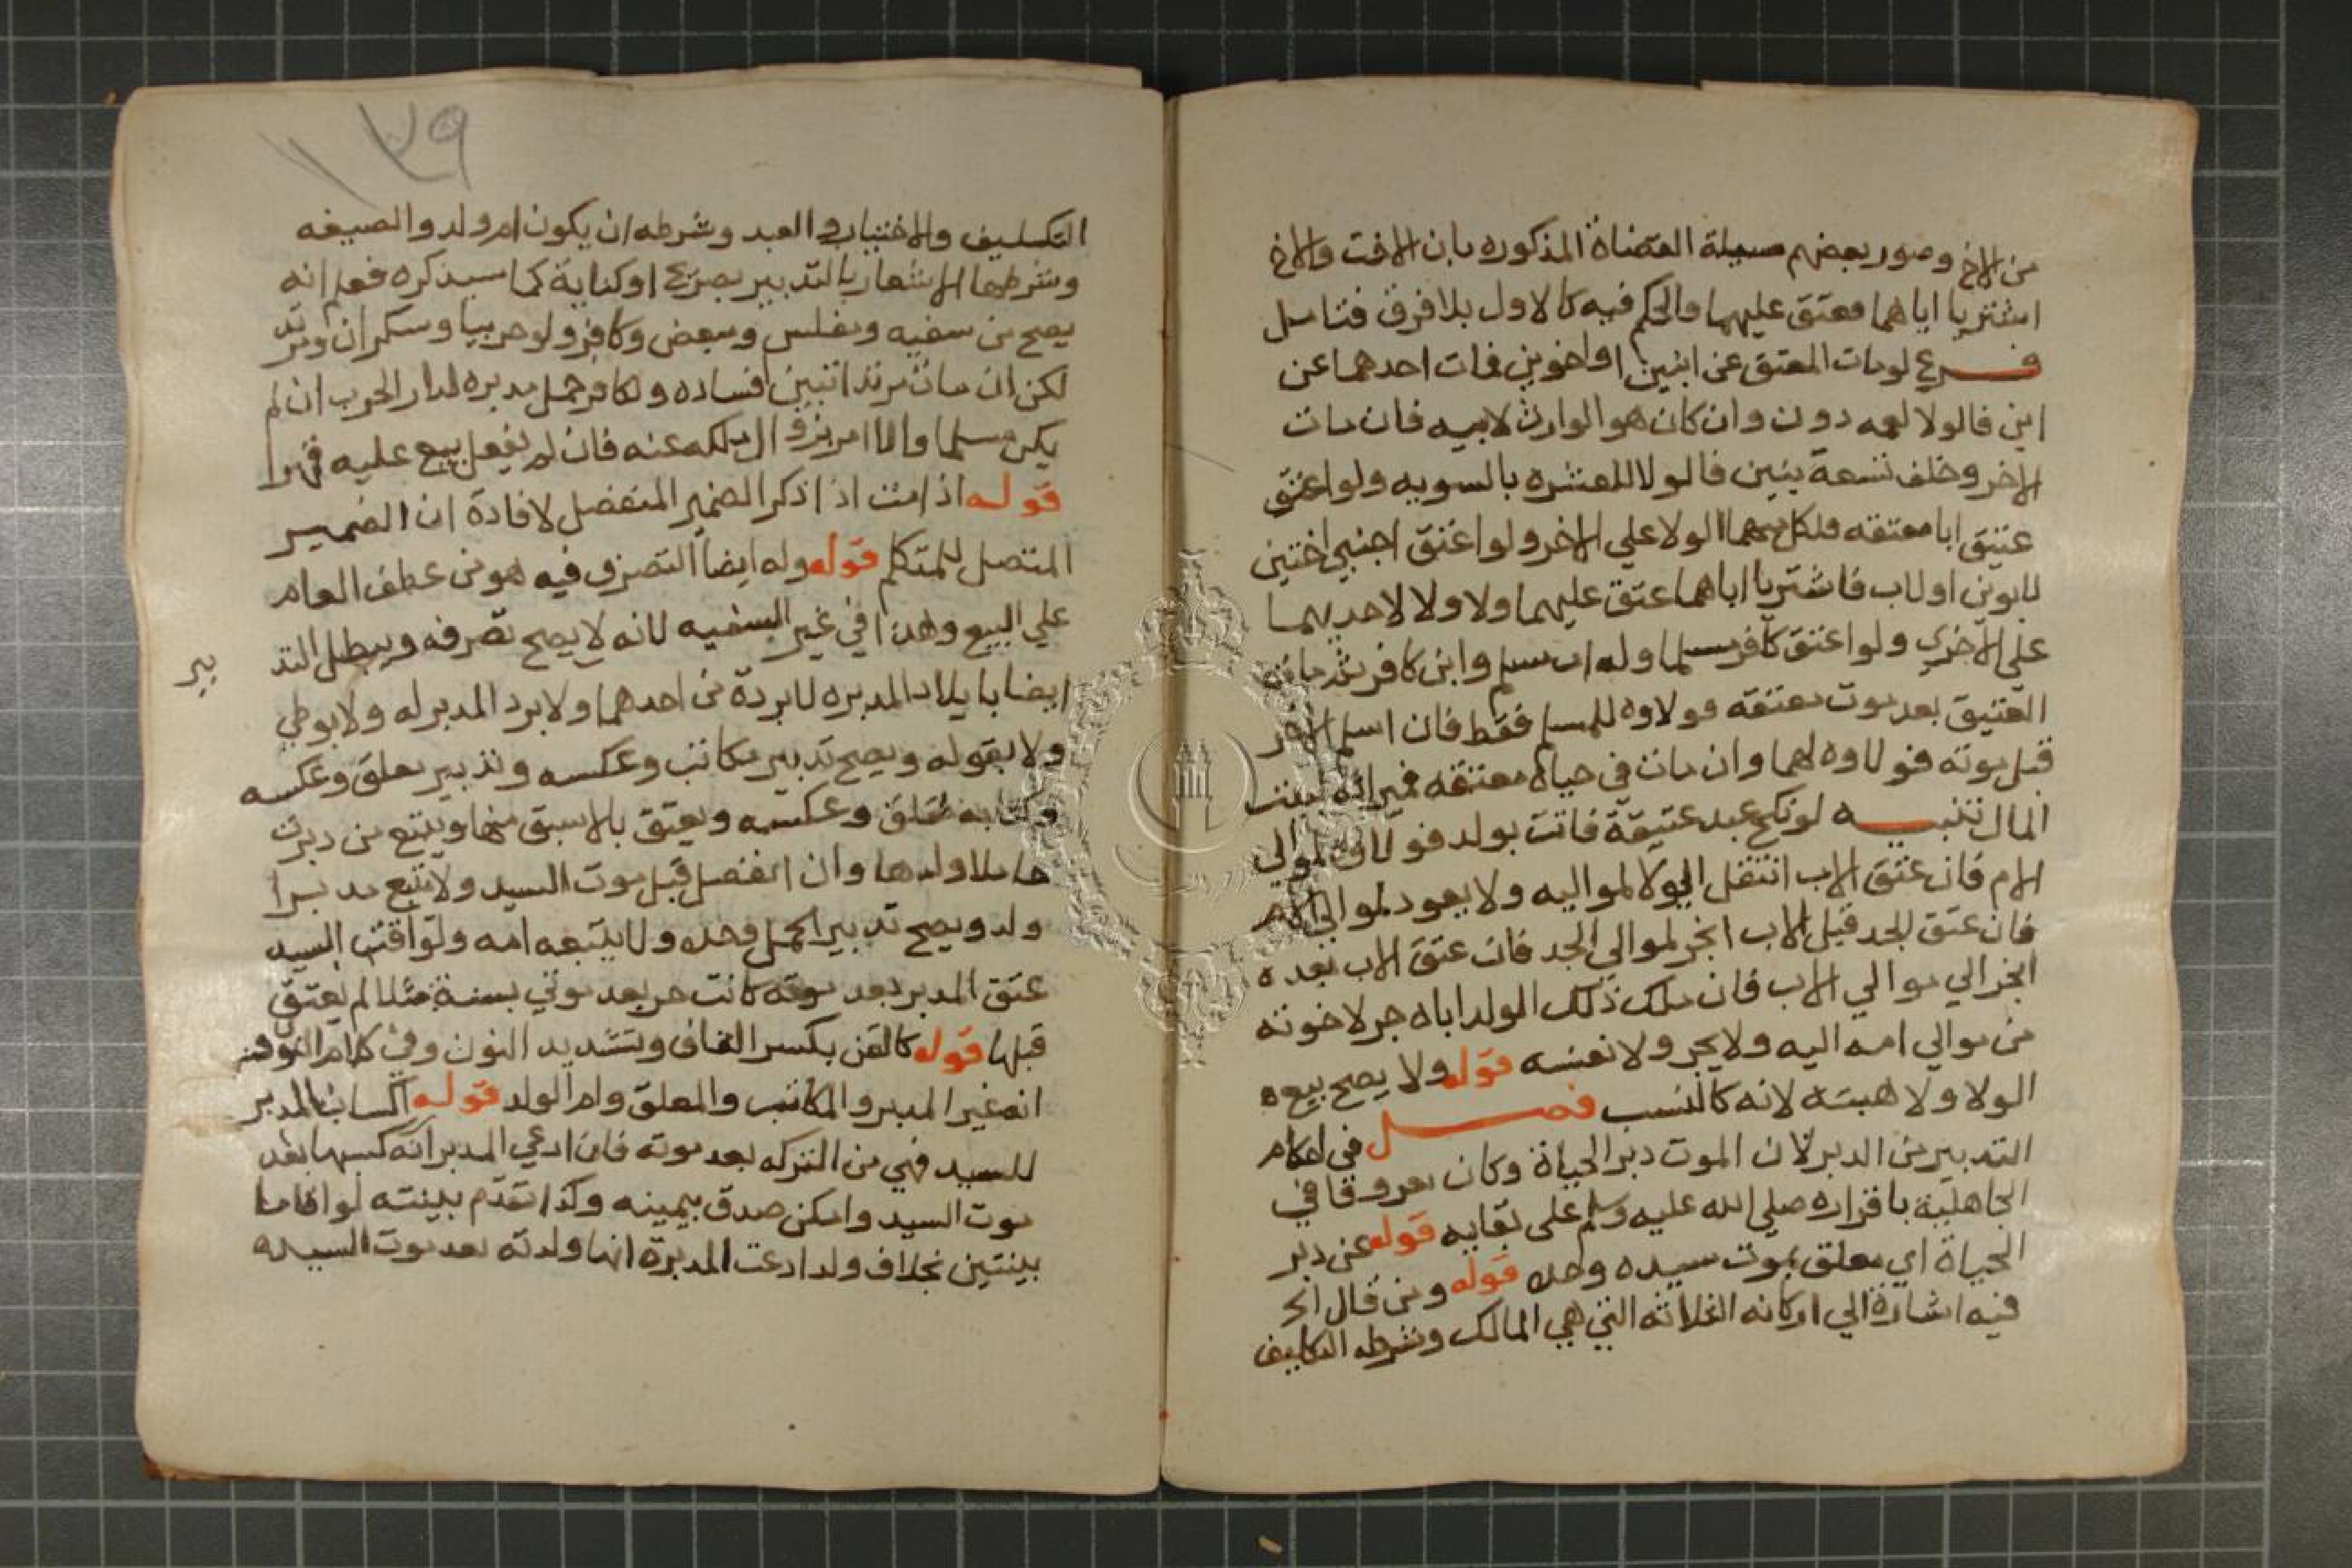 من الاخ وصور بعضهم مسيلة القضاة المذكوره بان الاخت والاخ
اشتريا اباهما فعتق عليهما والحكم فيه كالاول بلا فرق فتامل
فرع لو مات المعتق عن ابنين او اخوين فات احدهما عن
ابن فالولا لعمه دون وان كان هو الوارث لابيه فان مات
الاخر وخلف تسعة بنين فالولا للعشره بالسويه ولو اعتق
عتيق ابا معتقه فلكل منهما الولا علي الاخر ولو اعتق اجنبي اختين
لابوين او لاب فاشتريا اباهما عتق عليهما ولا ولا لاحديهما
علي الاخري ولو اعتق كافر مسلما وله ابن مسلم وابن كافر ثم مات
العتيق بعد موت معتقه فولاوه للمسلم فقط فان اسلم الاخر
قبل موته فولاوه لهما وان مات في حياة معتقه فميراثه لبيت
المال تنبيه لو نكح عبد عتيقة فاتت بولد فولاوه لموالي
الام فان عتق الاب انتقل الولا لمواليه ولا يعود لموالي الام
فان عتق الجد قبل الاب انجر لموالي الجد فان عتق الاب بعده
انجر الي موالي الاب فان ملك ذلك الولد اباه جر لاخوته
من موالي امه اليه ولا يجر ولا نفسه قوله ولا يصح بيع
الولا ولا هبته لانه كالنسب فصل في احكام
التدبير من الدبر لان الموت دبر الحياة وكان معروفا في
الجاهلية باقراره صلي الله عليه وسلم علي بقايه قوله عن دبر
الحياة اي معلق بموت سيده وحده قوله ومن قال الخ
فيه اشارة الي اركانه الثلاثه التي هي المالك وشرطه التكليف
١٣٩
التكليف والاختيار والعبد وشرطه ان يكون ام ولد والصيغه
وشرطها الاشعار بالتدبير بصريح او كناية كما سيذكره فعلم انه
يصح من سفيه ومفلس ومبعض وكافر ولو حربيا وسكران ومرتد
لكن ان مات مرتدا تبين فساده ولكافر حمل مدبره لدار الحرب ان لم
يكن مسلما والا امر بزوال ملكه عنه فان لم يفعل بيع عليه قهرا
قوله اذا مت اذا ذكر الضمير المنفصل لافادة ان الضمير
المتصل للمتكلم قوله وله ايضا التصرف فيه هو من عطف العام
علي البيع وهذا في غير السفيه لانه لا يصح تصرفه ويبطل التد
بير
ايضا بايلاد المدبره لا بردة من احدهما ولا برد المدبر له ولا بوطي
ولا بقوله ويصح تدبير مكاتب وعكسه وتدبير معلق وعكسه
وكتابة معلق وعكسه ويعتق بالاسبق منهما ويتبع من دبرت
حاملا ولدها وان انفصل قبل موت السيد ولا يتبع مدبرا
ولد ويصح تدبير الحمل وحده ولا يتبعه امه ولو اقت السيد
عتق المدبر بعد موته كانت حر بعد موتي بسنة مثلا لم يعتق
قبلها قوله كالقن بكسر القاف وتشديد النون وفي كلام النووي
انه غير المدبر والمكاتب والمعلق وام الولد قوله اكساب المدبر
للسيد فهي من التركه بعد موته فان ادعي المدبر انه كسبها بعد
موت السيد وامكن صدق بيمينه وكذا تقدم بينته لو اقاما
بينتين بخلاف ولد ادعت المدبرة انها ولدته بعد موت السيد